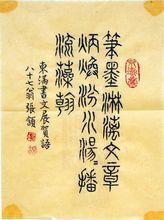 筆墨淋漓文章
炳煥汾水湯〻播
流藻翰
東滿書文展賀語
八十七翁張頷